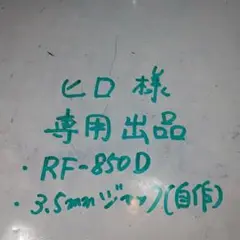 ヒロ様
専用出品
・RF-850D
・3.5mmジャック(自作)